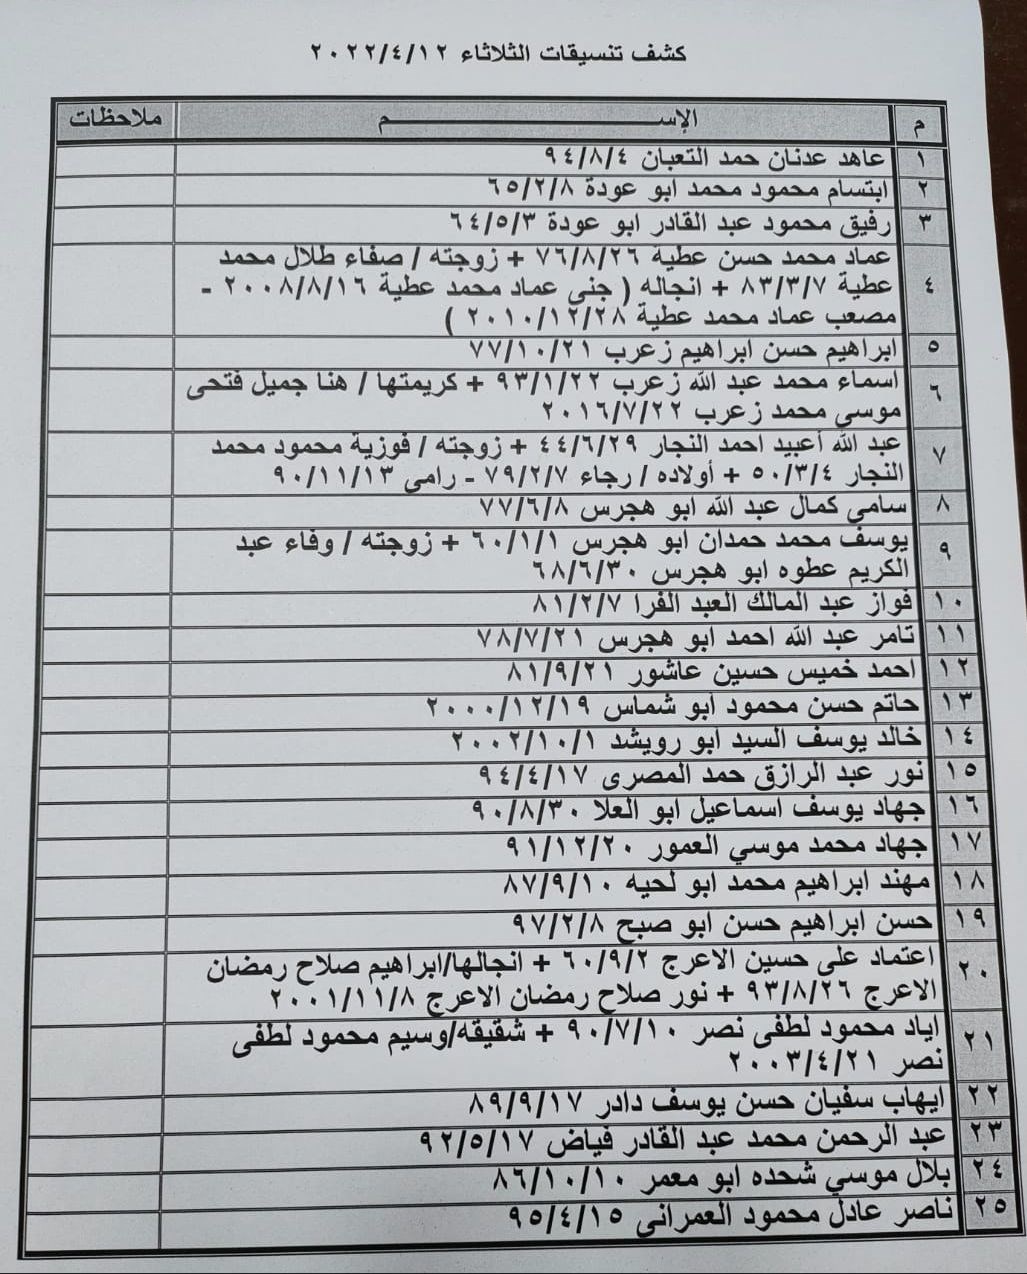 كشف تنسيقات الثلاثاء ٢٠٢٢/٤/١٢
م الإســـــــم ملاحظات
١ عاهد عدنان حمد التعبان ٩٤/٨/٤
٢ ابتسام محمود محمد ابو عودة ٦٥/٢/٨
٣ رفيق محمود عبد القادر ابو عودة ٦٤/٥/٣
٤ عماد محمد حسن عطية ٧٦/٨/٢٦ + زوجته / صفاء طلال محمد
عطية ٨٣/٣/٧ + انجاله ( جنى عماد محمد عطية ٢٠٠٨/٨/١٦ -
مصعب عماد محمد عطية ٢٠١٠/١٢/٢٨ )
٥ ابراهيم حسن ابراهيم زعرب ٧٧/١٠/٢١
٦ اسماء محمد عبد الله زعرب ٩٣/١/٢٢ + كريمتها / هنا جميل فتحى
موسي محمد زعرب ٢٠١٦/٧/٢٢
٧ عبد الله أعبيد احمد النجار ٤٤/٦/٢٩ + زوجته / فوزية محمود محمد
النجار ٥٠/٣/٤ + أولاده / رجاء ٧٩/٢/٧ - رامى ٩٠/١١/١٣
٨ سامى كمال عبد الله ابو هجرس ٧٧/٦/٨
٩ يوسف محمد حمدان ابو هجرس ٦٠/١/١ + زوجته / وفاء عبد
الكريم عطوه ابو هجرس ٦٨/٦/٣٠
١٠ فواز عبد المالك العبد الفرا ٨١/٢/٧
١١ تامر عبد الله احمد ابو هجرس ٧٨/٧/٢١
١٢ احمد خميس حسين عاشور ٨١/٩/٢١
١٣ حاتم حسن محمود ابو شماس ٢٠٠٠/١٢/١٩
١٤ خالد يوسف السيد ابو رويشد ٢٠٠٢/١٠/١
١٥ نور عبد الرازق حمد المصرى ٩٤/٤/١٧
١٦ جهاد يوسف اسماعيل ابو العلا ٩٠/٨/٣٠
١٧ جهاد محمد موسي العمور ٩١/١٢/٢٠
١٨ مهند ابراهيم محمد ابو لحيه ٨٧/٩/١٠
١٩ حسن ابراهيم حسن ابو صبح ٩٧/٢/٨
٢٠ اعتماد على حسين الاعرج ٦٠/٩/٢ + انجالها/ابراهيم صلاح رمضان
الاعرج ٩٣/٨/٢٦ + نور صلاح رمضان الاعرج ٢٠٠١/١١/٨
٢١ اياد محمود لطفى نصر ٩٠/٧/١٠ + شقيقه/وسيم محمود لطفى
نصر ٢٠٠٣/٤/٢١
٢٢ ايهاب سفيان حسن يوسف دادر ٨٩/٩/١٧
٢٣ عبد الرحمن محمد عبد القادر فياض ٩٢/٥/١٧
٢٤ بلال موسي شحده ابو معمر ٨٦/١٠/١٠
٢٥ ناصر عادل محمود العمرانى ٩٥/٤/١٥